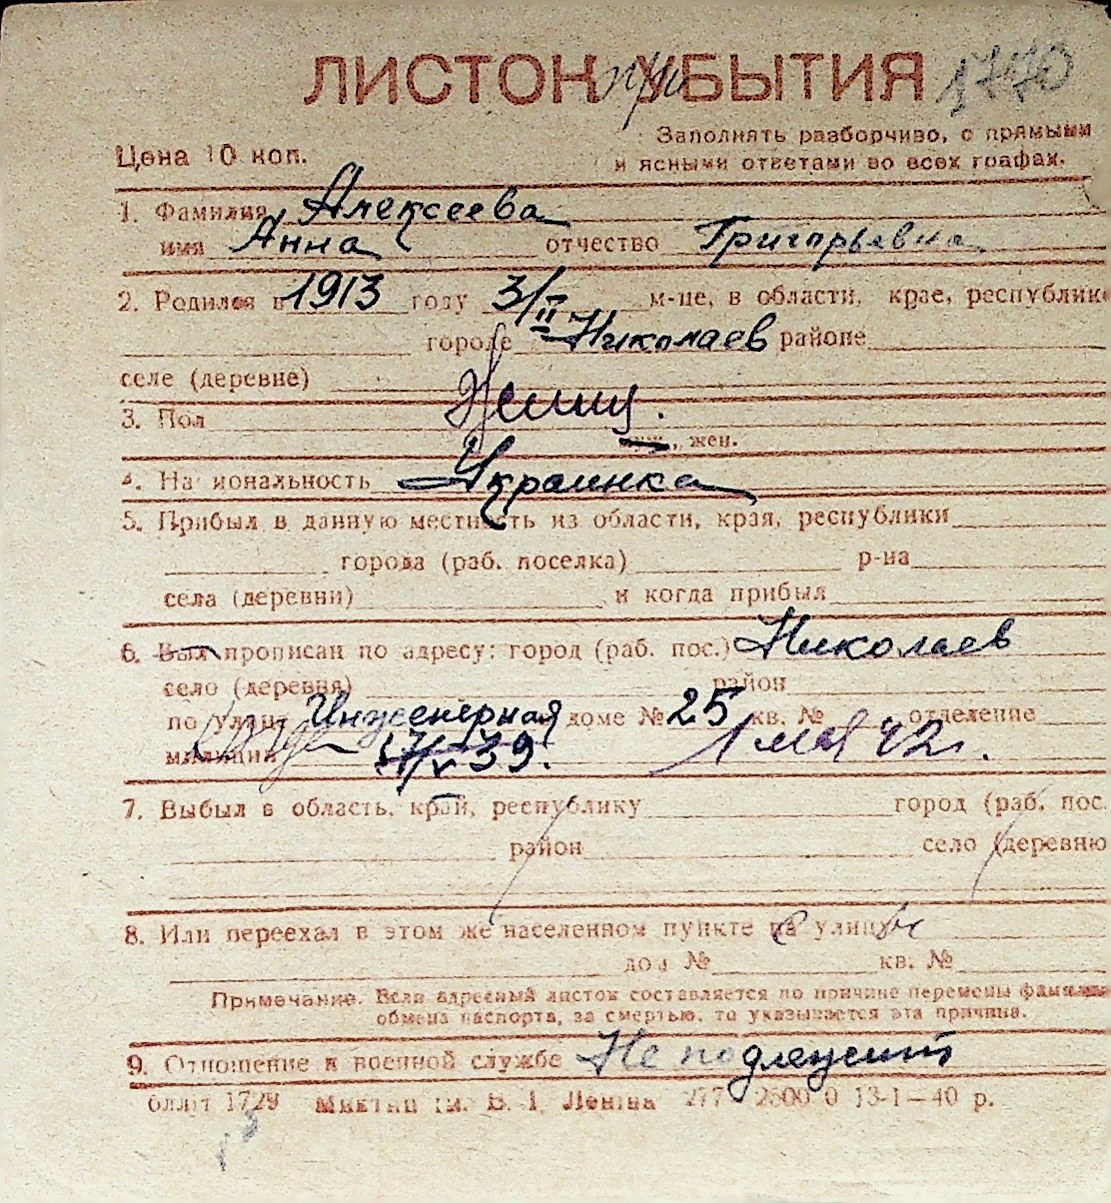 ЛИСТОК УБЫТИЯ 1770
при
Заполнять разборчиво, с прямыми
Цена 10 коп. и ясными ответами во всех графах.
1. Фамилия Алексеева
имя Анна отчество Григорьевна
2. Родился в 1913 году 3/II м-це, в области, крае, республике
городе Николаев районе
селе (деревне)
3. Пол Женщ.
муж., жен.
4. Национальность Украинка
5. Прибыл в данную местность из области, края, республики
города (раб. поселка) р-на
села (деревни) и когда прибыл
6. Был прописан по адресу: город (раб. пос.) Николаев
село (деревня) район
по улице Инженерная доме № 25 кв. № отделение
милиции 17/V 39. 1 мая 42 г.
7. Выбыл в область, край, республику город (раб. пос.
район село (деревню
8. Или переехал в этом же населенном пункте на улицу
дом № кв. №
Примечание. Если адресный листок составляется по причине перемены фамилии
обмена паспорта, за смертью, то указывается эта причина.
9. Отношение к военной службе Не подлежит
1729 ім. В. І. Леніна 13-1—40 р.